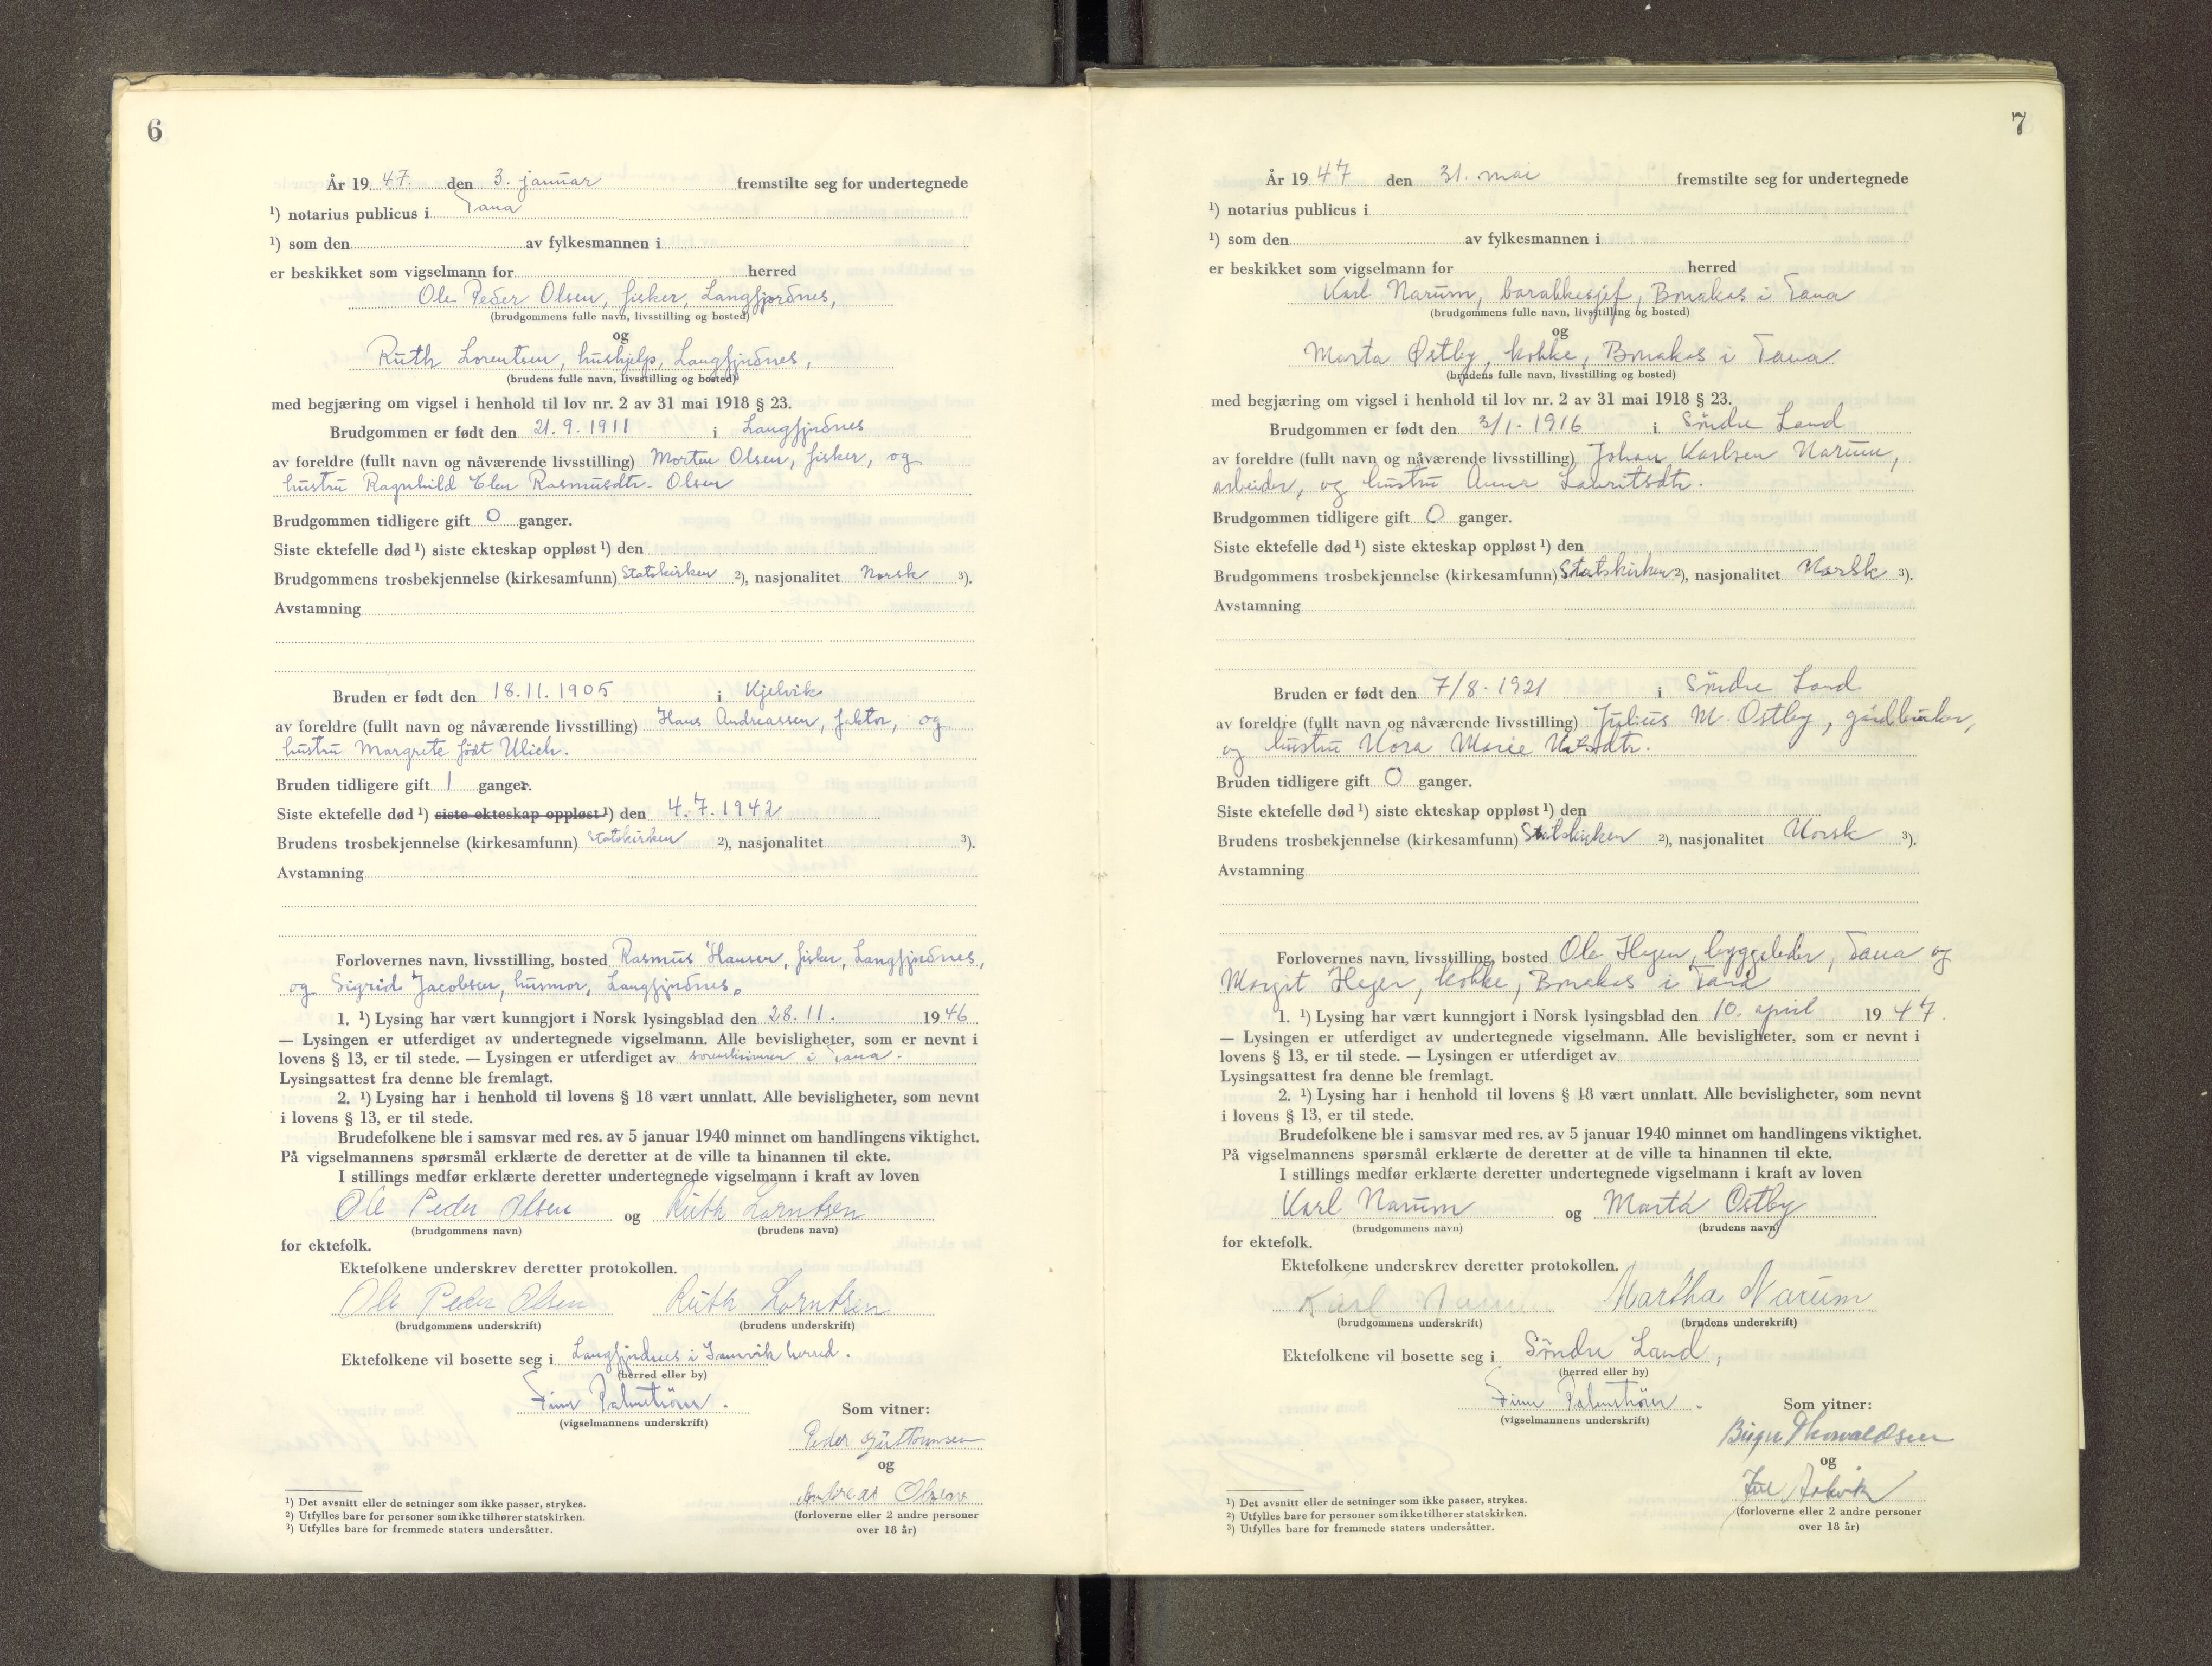 6
År 19 47. den 3. januar fremstilte seg for undertegnede
¹) notarius publicus i Tana
¹) som den av fylkesmannen i
er beskikket som vigselmann for herred
Ole Peder Olsen, fisker, Langfjordnes,
(brudgommens fulle navn, livsstilling og bosted)
og
Ruth Lorentsen, hushjelp, Langfjordnes,
(brudens fulle navn, livsstilling og bosted)
med begjæring om vigsel i henhold til lov nr. 2 av 31 mai 1918 § 23.
Brudgommen er født den 21. 9. 1911 i Langfjordnes
av foreldre (fullt navn og nåværende livsstilling) Morten Olsen, fisker, og
hustru Ragnhild Elen Rasmusdtr. Olsen
Brudgommen tidligere gift 0 ganger.
Siste ektefelle død ¹) siste ekteskap oppløst ¹) den
Brudgommens trosbekjennelse (kirkesamfunn) Statskirken ²), nasjonalitet Norsk ³).
Avstamning
Bruden er født den 18. 11. 1905 i Kjelvik
av foreldre (fullt navn og nåværende livsstilling) Hans Andreassen, faktor, og
hustru Margrete født Ulich.
Bruden tidligere gift 1 ganger.
Siste ektefelle død ¹) siste ekteskap oppløst ¹) den 4. 7. 1942
Brudens trosbekjennelse (kirkesamfunn) Statskirken ²), nasjonalitet ³).
Avstamning
Forlovernes navn, livsstilling, bosted Rasmus Hansen, fisker, Langfjordnes,
og Sigrid Jacobsen, husmor, Langfjordnes.
1. ¹) Lysing har vært kunngjort i Norsk lysingsblad den 28. 11. 19 46
— Lysingen er utferdiget av undertegnede vigselmann. Alle bevisligheter, som er nevnt i
lovens § 13, er til stede. — Lysingen er utferdiget av sorenskriveren i Tana.
Lysingsattest fra denne ble fremlagt.
2. ¹) Lysing har i henhold til lovens § 18 vært unnlatt. Alle bevisligheter, som nevnt
i lovens § 13, er til stede.
Brudefolkene ble i samsvar med res. av 5 januar 1940 minnet om handlingens viktighet.
På vigselmannens spørsmål erklærte de deretter at de ville ta hinannen til ekte.
I stillings medfør erklærte deretter undertegnede vigselmann i kraft av loven
Ole Peder Olsen og Ruth Lorntsen
(brudgommens navn) (brudens navn)
for ektefolk.
Ektefolkene underskrev deretter protokollen.
Ole Peder Olsen Ruth Lorntsen
(brudgommens underskrift) (brudens underskrift)
Ektefolkene vil bosette seg i Langfjordnes i Gamvik herred.
(herred eller by)
Finn Palmstrøm.
(vigselmannens underskrift)
Som vitner:
Peder Guttormsen
og
Andreas Olsen
(forloverne eller 2 andre personer
over 18 år)
¹) Det avsnitt eller de setninger som ikke passer, strykes.
²) Utfylles bare for personer som ikke tilhører statskirken.
³) Utfylles bare for fremmede staters undersåtter.
7
År 19 47 den 31. mai fremstilte seg for undertegnede
¹) notarius publicus i
¹) som den av fylkesmannen i
er beskikket som vigselmann for herred
Karl Narum, barakkesjef, Bonakas i Tana
(brudgommens fulle navn, livsstilling og bosted)
og
Marta Østby, kokke, Bonakas i Tana
(brudens fulle navn, livsstilling og bosted)
med begjæring om vigsel i henhold til lov nr. 2 av 31 mai 1918 § 23.
Brudgommen er født den 3/1 - 1916 i Söndre Land
av foreldre (fullt navn og nåværende livsstilling) Johan Karlsen Narum,
arbeider, og hustru Anna Lauritsdtr.
Brudgommen tidligere gift 0 ganger.
Siste ektefelle død ¹) siste ekteskap oppløst ¹) den
Brudgommens trosbekjennelse (kirkesamfunn) Statskirken ²), nasjonalitet Norsk ³).
Avstamning
Bruden er født den 7/8 - 1921 i Söndre Land
av foreldre (fullt navn og nåværende livsstilling) Julius M. Østby, gårdbruker,
og hustru Nora Marie
Bruden tidligere gift 0 ganger.
Siste ektefelle død ¹) siste ekteskap oppløst ¹) den
Brudens trosbekjennelse (kirkesamfunn) Statskirken ²), nasjonalitet Norsk ³).
Avstamning
Forlovernes navn, livsstilling, bosted Ole Hejer, byggeleder, Tana og
Margit Hejer, kokke, Bonakas i Tana
1. ¹) Lysing har vært kunngjort i Norsk lysingsblad den 10. april 19 47.
— Lysingen er utferdiget av undertegnede vigselmann. Alle bevisligheter, som er nevnt i
lovens § 13, er til stede. — Lysingen er utferdiget av
Lysingsattest fra denne ble fremlagt.
2. ¹) Lysing har i henhold til lovens § 18 vært unnlatt. Alle bevisligheter, som nevnt
i lovens § 13, er til stede.
Brudefolkene ble i samsvar med res. av 5 januar 1940 minnet om handlingens viktighet.
På vigselmannens spørsmål erklærte de deretter at de ville ta hinannen til ekte.
I stillings medfør erklærte deretter undertegnede vigselmann i kraft av loven
Karl Narum og Marta Østby
(brudgommens navn) (brudens navn)
for ektefolk.
Ektefolkene underskrev deretter protokollen.
Karl Narum Martha Narum
(brudgommens underskrift) (brudens underskrift)
Ektefolkene vil bosette seg i Söndre Land,
(herred eller by)
Finn Palmstrøm.
(vigselmannens underskrift)
Som vitner:
Birger Thorvaldsen
og
(forloverne eller 2 andre personer
over 18 år)
¹) Det avsnitt eller de setninger som ikke passer, strykes.
²) Utfylles bare for personer som ikke tilhører statskirken.
³) Utfylles bare for fremmede staters undersåtter.